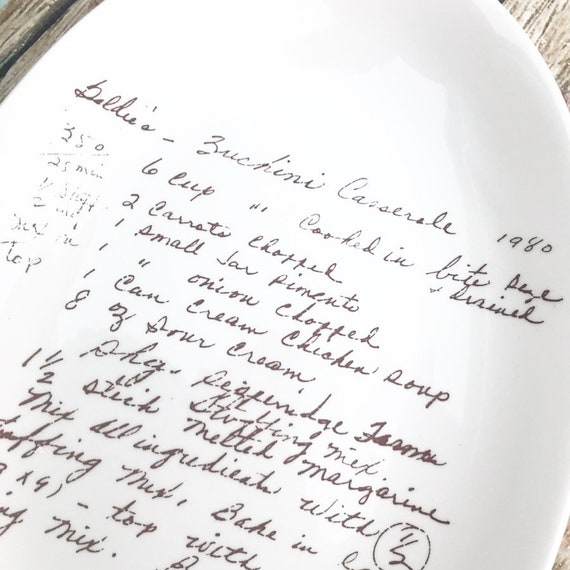 Goldie's - Zuchini Casserole 1980
350
25 min
6 cup " Cooked in bite size
& drained
2 Carrots chopped
1 small Jar Pimento
1 " onion chopped
1 Can Cream Chicken Soup
8 oz Sour Cream
1 Pkg. Pepperidge Farm
Stuffing mix
1/2 stick melted margarine
Mix all ingredients with 1/2
stuffing mix. Bake in
x 9) - top with
mix.
top